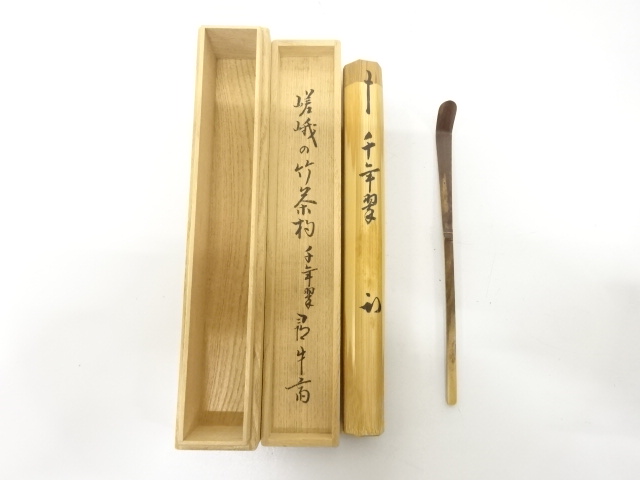 嵯峨の竹茶杓
千年翠
尋牛斎
千年翠